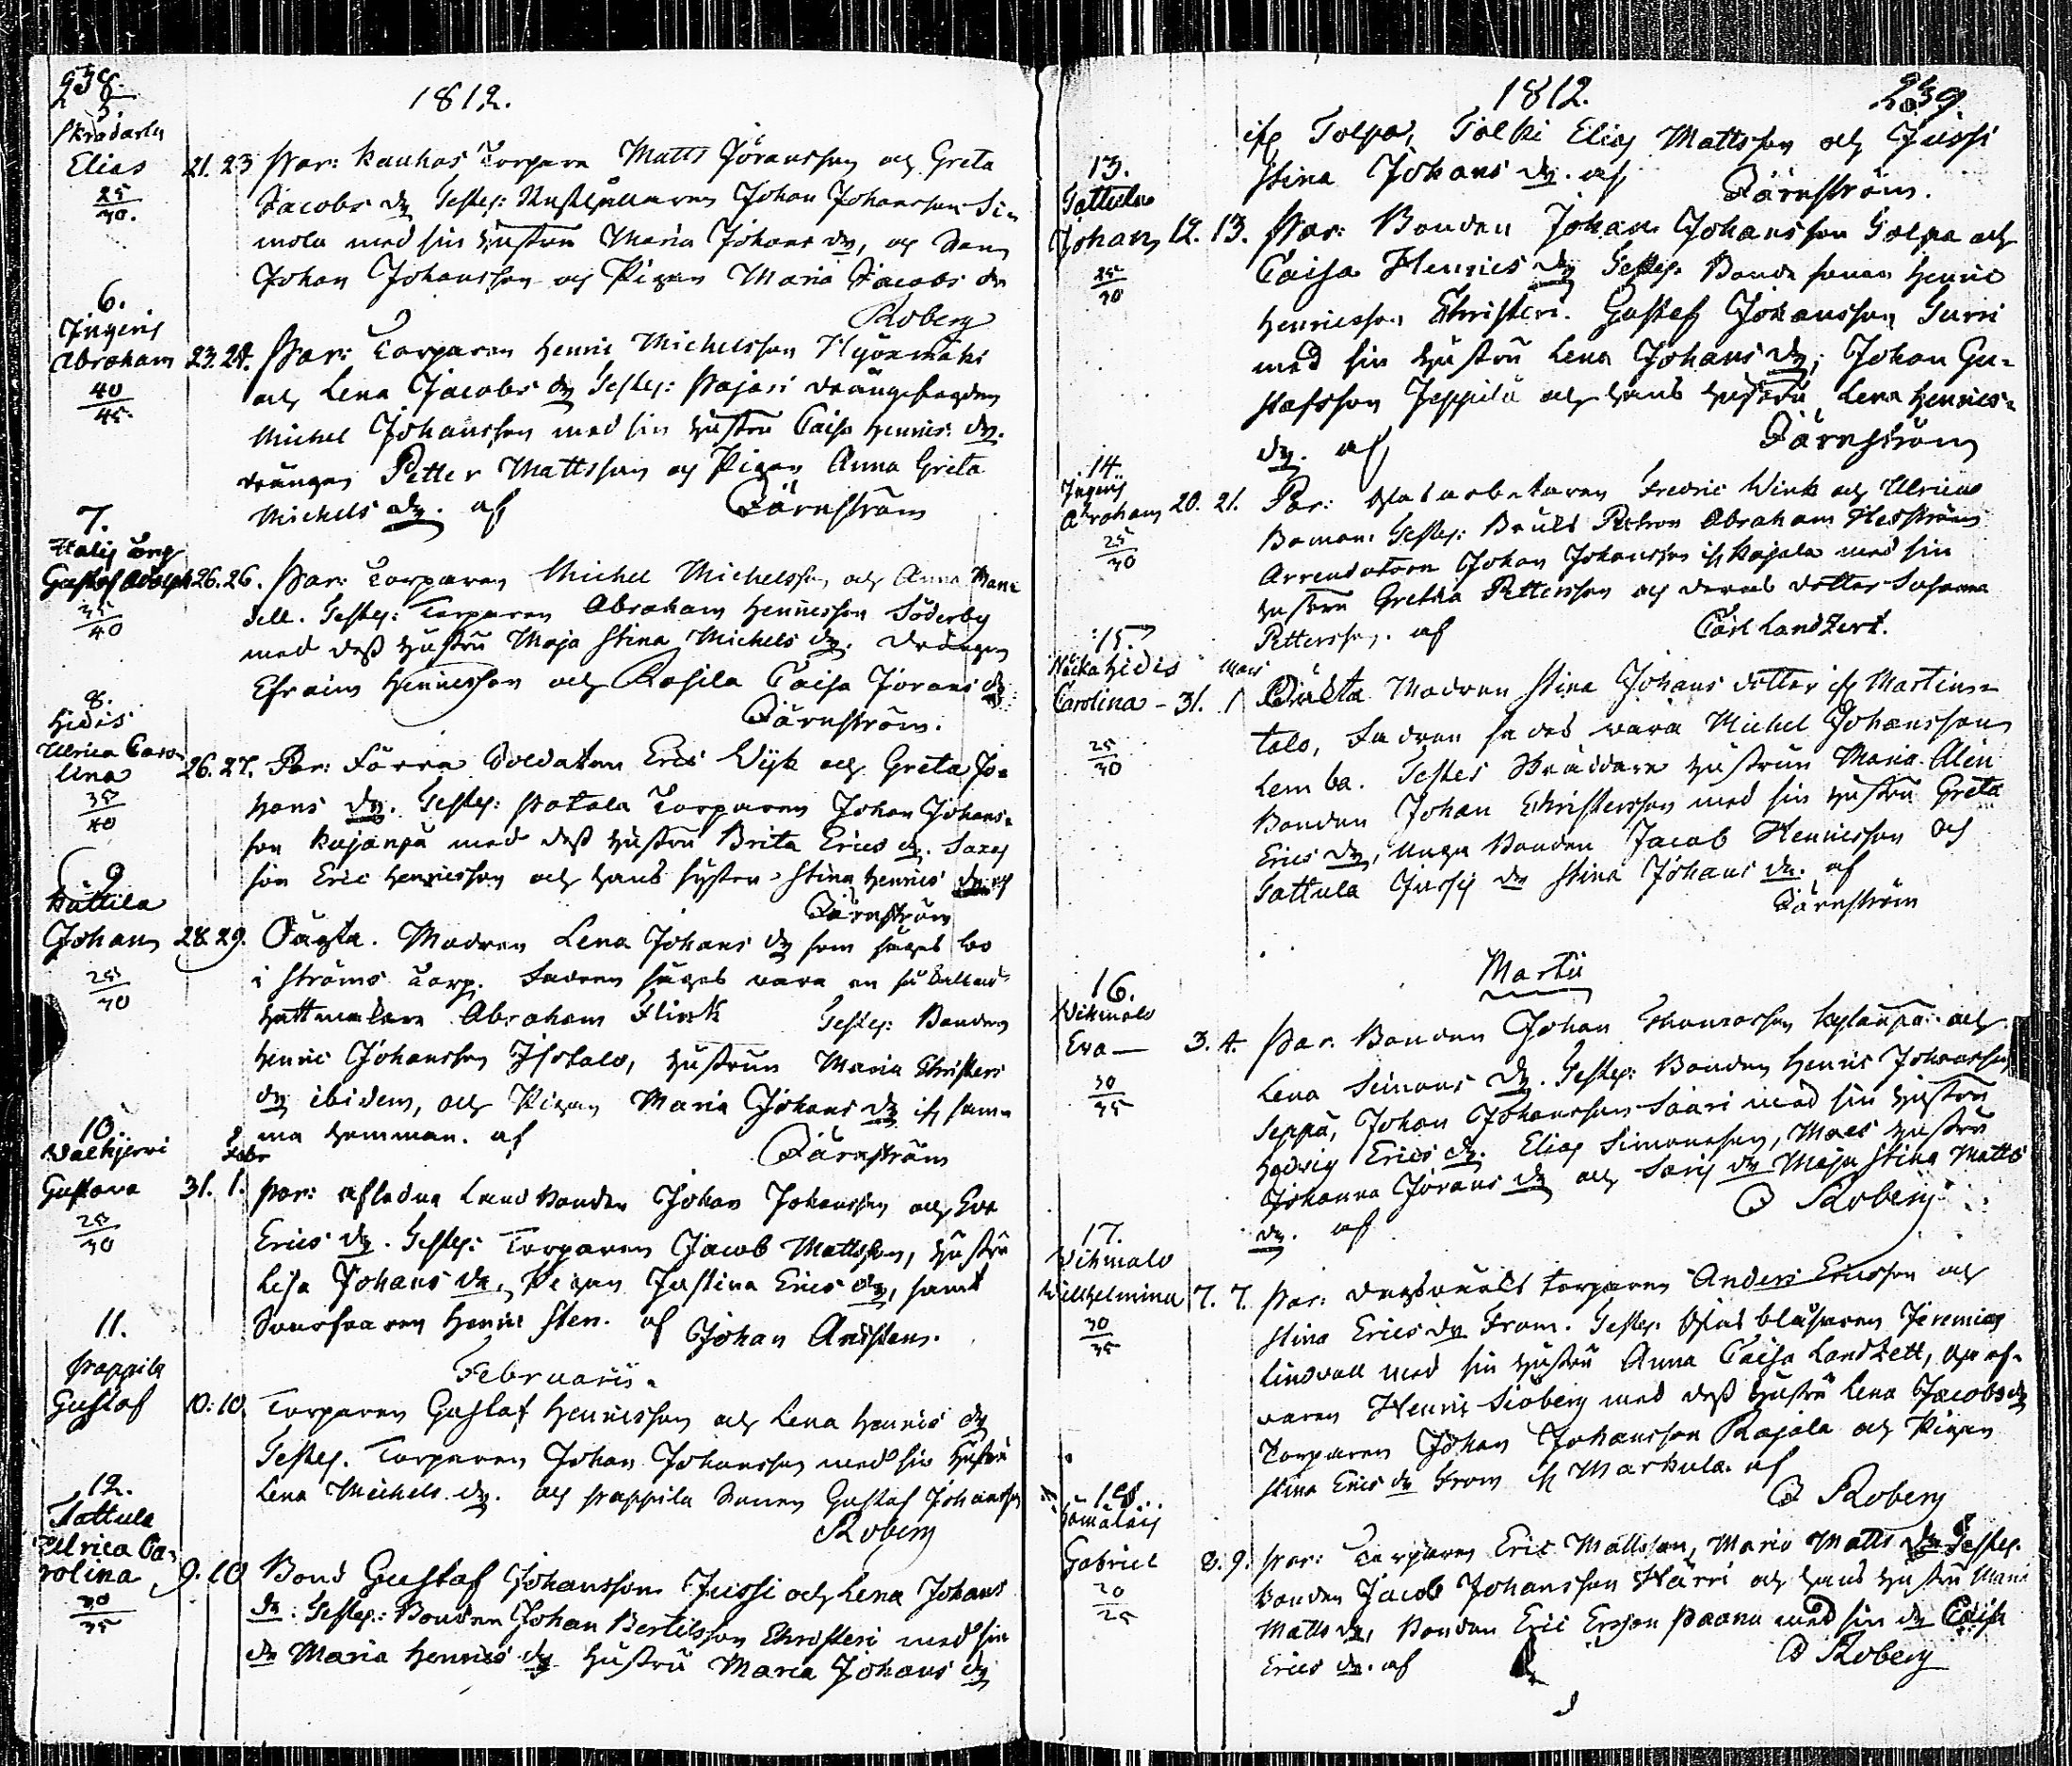 238.
1812.
5.
Skrädarby
Elias
25
30.
21. 23
Par: Kauhas Torpare Matts Göransson och Greta
Jacobs dr Testes:
Johan Johansson Si-
mola med sin hustru Maria Johans dr, och
Johan Johansson och Pigan Maria Jacobs dr
Roberg
6.
Ingeris
Abraham
40
45.
23. 24.
Par: Torparen Henric Michelsson
och Lena Jacobs dr Testes: Pajari
Michel Johansson med sin hustru Caisa Henrics dr.
drängen Petter Mattsson och Pigan Anna Greta
Michels dr. af
Färnström
7.
Gustaf Adolph
35
40
26. 26.
Par: Torparen Michel Michelsson och Anna
dell. Testes: Torparen Abraham Henricsson Söderby
med dess hustru Maja Stina Michels dr. Drängen
Efraim Henricsson och Caisa Görans dr
Färnström.
8.
Hidis
Ulrica Caro-
lina
35
40
26. 27.
Par: Förra Soldaten Eric Wijk och Greta Jo-
hans dr. Testes: Torparen Johan Johans-
son Kajanpä med dess hustru Brita Erics dr.
son Eric Henricsson och hans syster Stina Henrics dr af
Färnström
9
Kättila
Johan
25
30
28. 29.
Oägta. Modren Lena Johans dr som säges bo
i Ströms Torp. Fadren säges vara en så kallad
hattmakare Abraham Flink Testes: Bonden
Henric Johansson Isotalo, hustrun Maria Christers
dr ibidem, och Pigan Maria Johans dr if samma
hemman. af
Färnström
10.
Walkjervi
Gustava
25
30
31. 1.
Febr
Par: Johan Johansson och Eva
Erics dr. Testes: Torparen Jacob Mattsson, hustru
Lisa Johans dr, Pigan Justina Erics dr, samt
Henric Sten. af Johan Anistens.
Februarii.
11.
Pappila
Gustaf
10. 10.
Torparen Gustaf Henricsson och Lena Henrics dr
Testes. Torparen Johan Johansson med sin hustru
Lena Michels dr. och Pappila Gustaf Johansson
Roberg
12.
Tattula
Ulrica Ca-
rolina
30
35
9. 10
Bond Gustaf Johansson Jussi och Lena Johans
dr: Testes: Bonden Johan Bertilsson Christeri med sin
dr Maria Henrics dr hustru Maria Johans dr
1812.
239
if Tolpo, Tolki Elias Mattsson och Jussi
Stina Johans dr. af
Färnström.
13.
Tattula
Johan
25
30
12. 13.
Par: Bonden Johan Johansson Tolpa och
Caisa Henrics dr Testes: Bonde sonen Henric
Henricsson Christeri. Gustaf Johansson Turri
med sin hustru Lena Johans dr; Johan Gu-
stafsson Jeppilä och hans hustru Lena Henrics-
dr. af
Färnström
14.
Ingeris
Abraham
25
30
20. 21.
Par: Glas arbetaren Fredric Wink och Ulrica
Boman. Testes: Bruks Patron Abraham
Arrendatorn Johan Johansson if Kajala med sin
hustru Gretha Pettersson och deras dotter Susanna
Pettersson. af
Carl Landzert.
15.
Näckahidis
Carolina
25
30
31. 1
Mars
Oäkta Modren Stina Johans dotter if Martins-
talo, Fadren sades vara Michel Johansson
Lemba. Testes Skräddare hustrun Maria Alén
Bonden Johan Christersson med sin hustru Greta
Erics dr, unga Bonden Jacob Henricsson och
Tattula Jussis dr Stina Johans dr. af
Färnström
Martii
16.
Wihmalo
Eva
30
35
3. 4.
Par. Bonden Johan Thomasson Kylänpä och
Lena Simons dr. Testes: Bonden Henric Johansson
Seppä, Johan Johansson Saari med sin hustru
Hedvig Erics dr. Elias Simonsson, hustru
Johanna Görans dr och Saris dr Maja Stina Matts
dr. af
Roberg
17.
Wihmalo
Wilhelmina
30
35
7. 7.
Par: torparen Anders Ericsson och
Stina Erics dr From. Testes. Glas blåsaren Jeremias
Lindvall med sin hustru Anna Caisa Landzett,
Henric Siöberg med dess hustru Lena Jacobs dr
Torparen Johan Johansson Rajala och Pigan
Stina Erics dr From if Markula. af
Roberg
18.
Gabriel
20
25
8. 9.
Par: Torparen Eric Mattsson, Maria Matts dr Testes.
Bonden Jacob Johansson Härri och hans hustru Maria
Matts dr, Bonden Eric Ersson Paanu med sin dr Caisa
Erics dr. af
Roberg